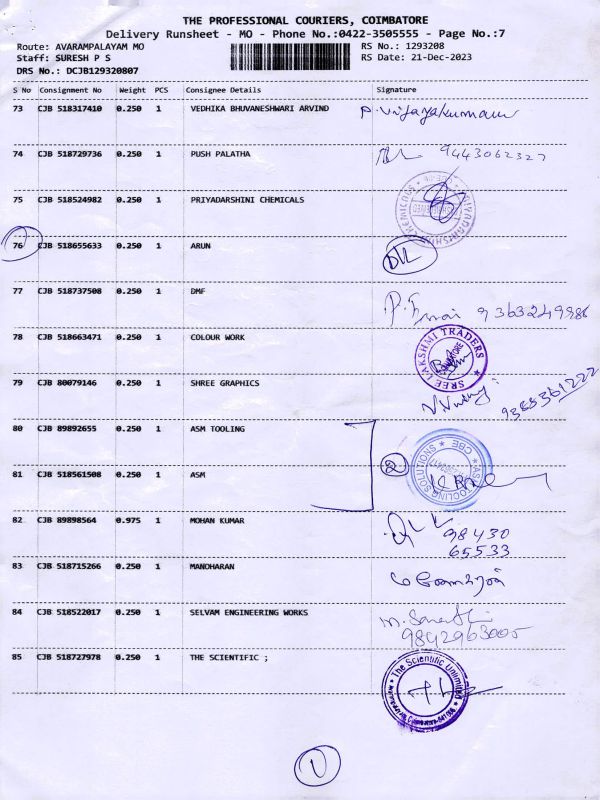 THE PROFESSIONAL COURIERS, COIMBATORE
Delivery Runsheet - MO - Phone No.:0422-3505555 - Page No.:7
Route: AVARAMPALAYAM MO RS No.: 1293208
Staff: SURESH P S RS Date: 21-Dec-2023
DRS No.: DCJB129320807
S No Consignment No Weight PCS Consignee Details Signature
73 CJB 518317410 0.250 1 VEDHIKA BHUVANESHWARI ARVIND P. Vijayakumar
74 CJB 518729736 0.250 1 PUSH PALATHA 9443062327
75 CJB 518524982 0.250 1 PRIYADARSHINI CHEMICALS
76 CJB 518655633 0.250 1 ARUN
77 CJB 518737508 0.250 1 DMF 9363249986
78 CJB 518663471 0.250 1 COLOUR WORK SREE LAKSHMI TRADERS
79 CJB 80079146 0.250 1 SHREE GRAPHICS 9385361222
80 CJB 89892655 0.250 1 ASM TOOLING
81 CJB 518561508 0.250 1 ASM 2 ASM TOOLING SOLUTIONS CBE
82 CJB 89898564 0.975 1 MOHAN KUMAR 98430
65533
83 CJB 518715266 0.250 1 MANOHARAN
84 CJB 518522017 0.250 1 SELVAM ENGINEERING WORKS
9842963005
85 CJB 518727978 0.250 1 THE SCIENTIFIC ; The Scientific Unlimited